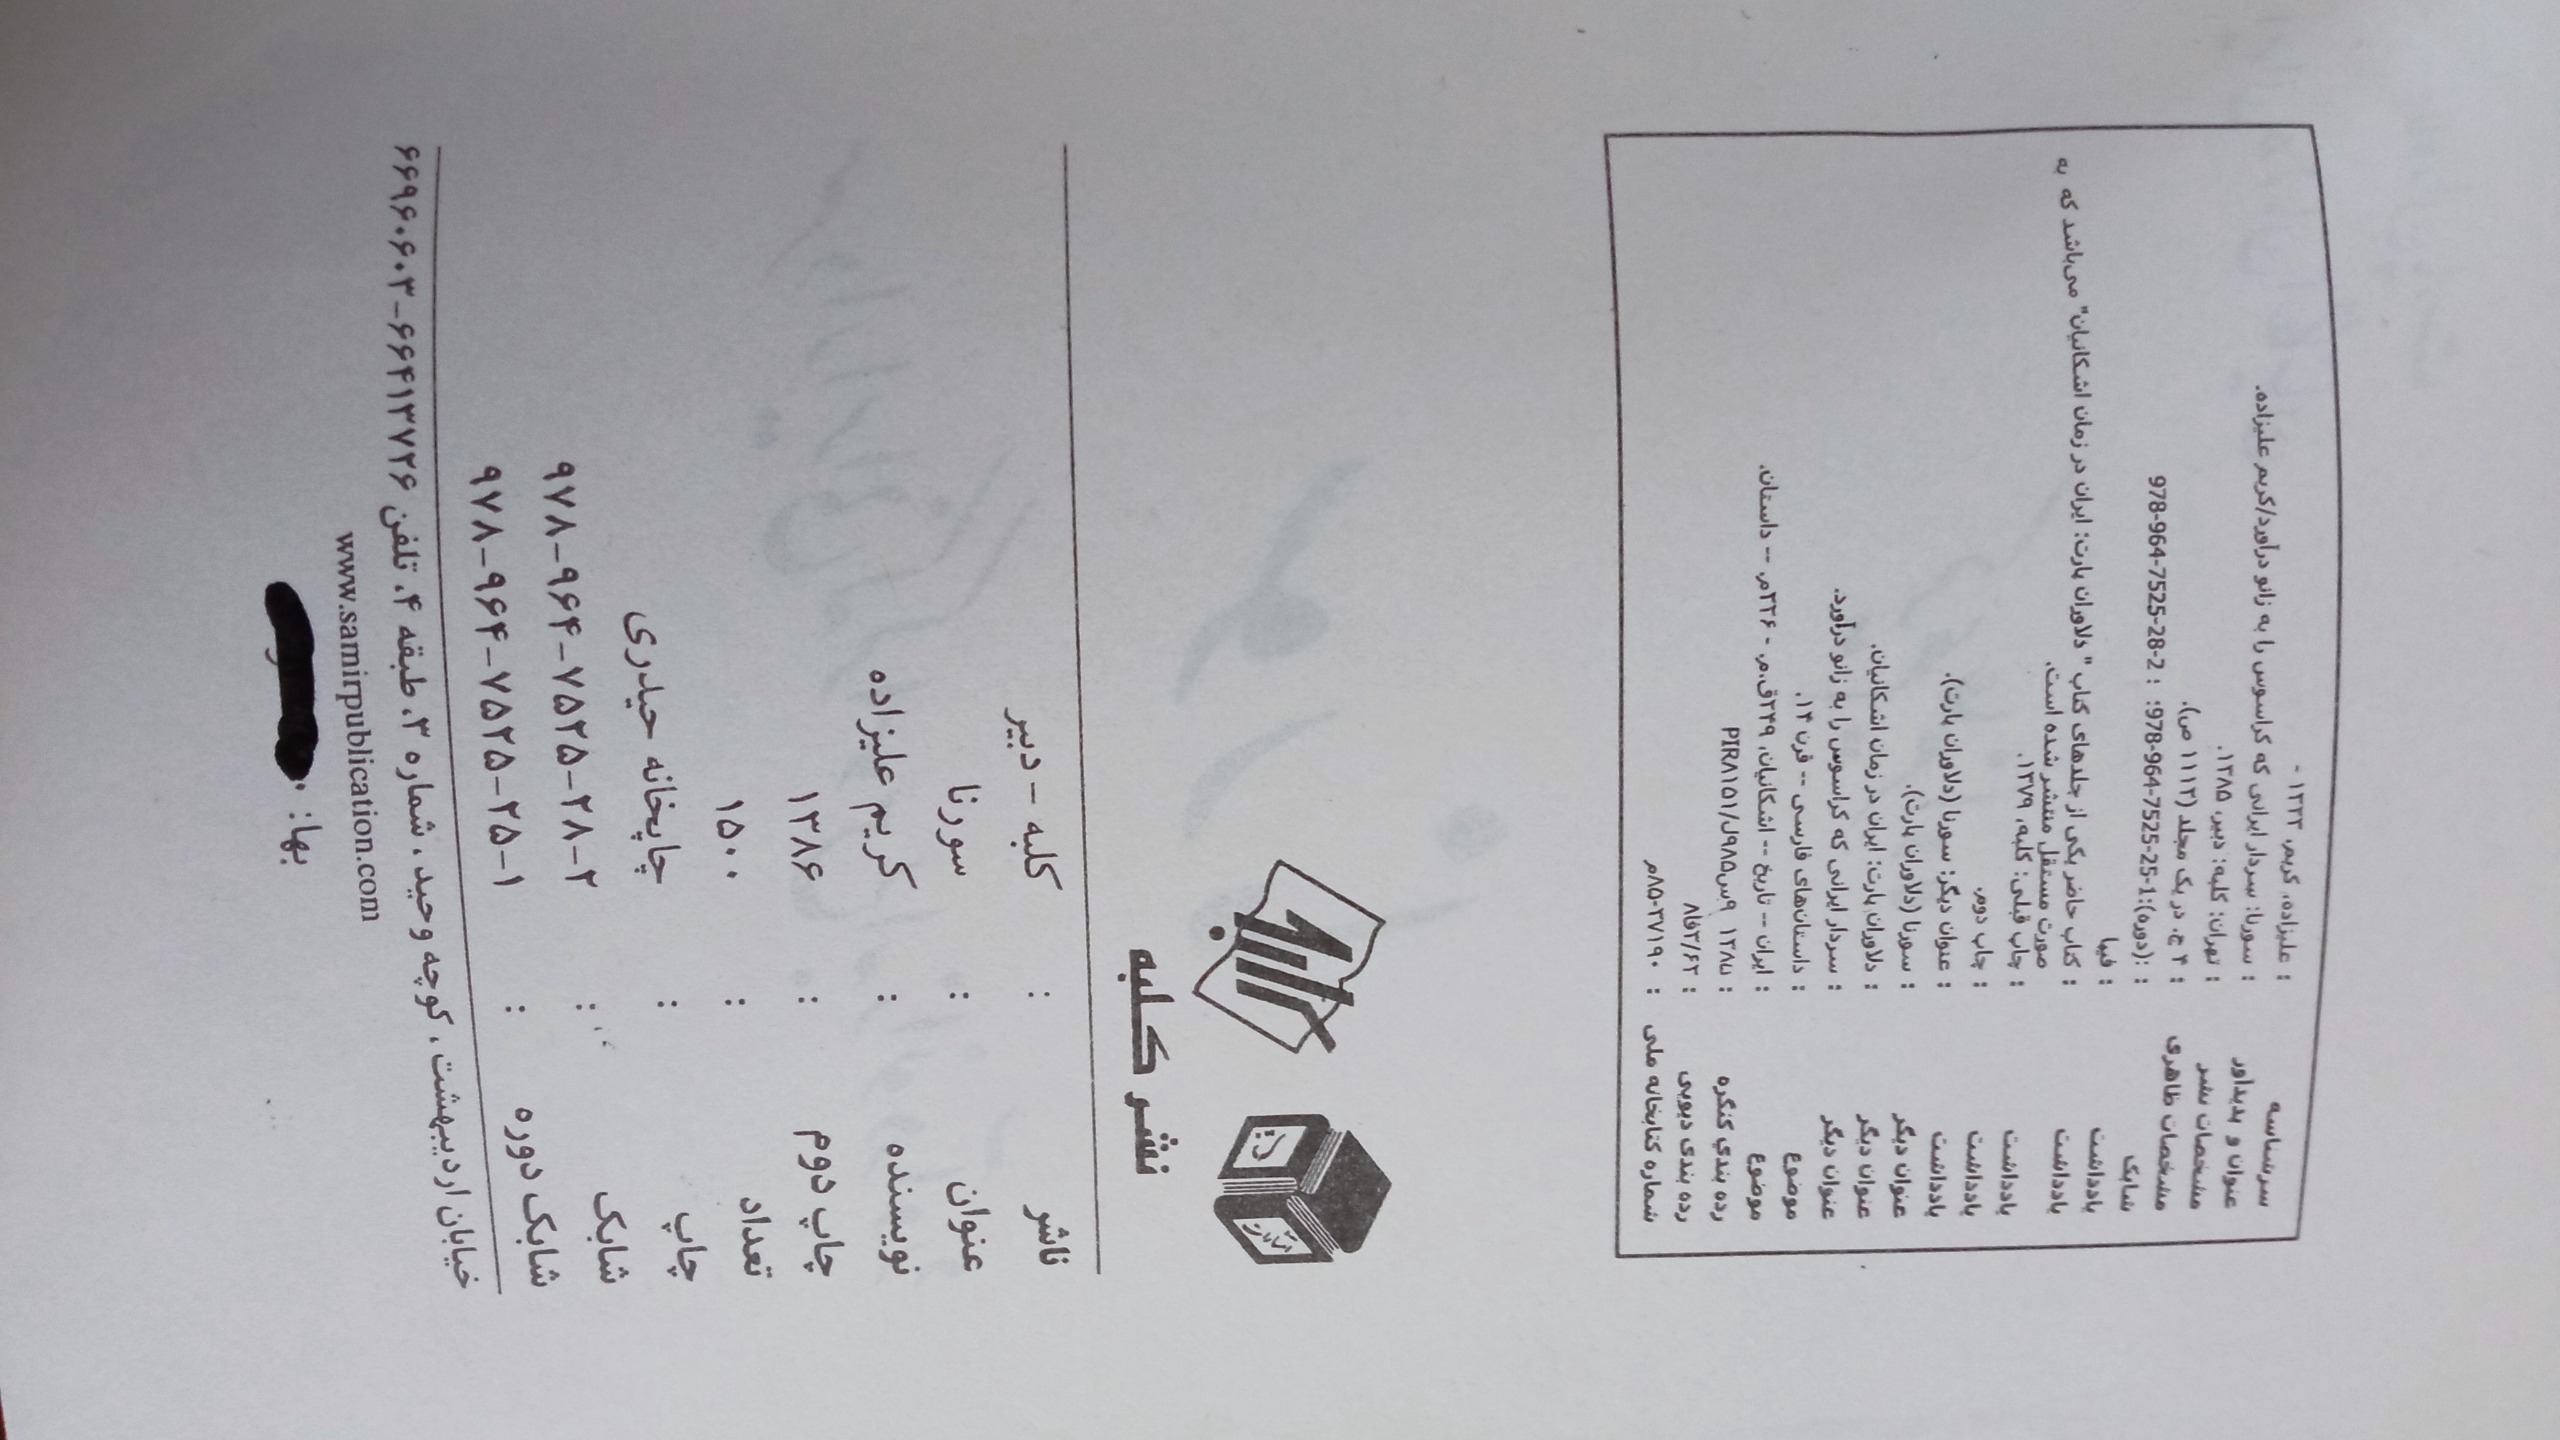 سرشناسه : علیزاده، کریم, ۱۳۳۳ -
عنوان و پدیدآور : سورنا: سردار ایرانی که کراسوس را به زانو درآورد/کریم علیزاده.
مشخصات نشر : تهران: کلبه: دبیر، ۱۳۸۵.
مشخصات ظاهری : ۴ ج. در یک مجلد (۱۱۱۲ ص).
شابک : (دوره):978-964-7525-25-1: 978-964-7525-28-2 :
یادداشت : فیپا
یادداشت : کتاب حاضر یکی از جلدهای کتاب " دلاوران پارت: ایران در زمان اشکانیان" می‌باشد که به
صورت مستقل منتشر شده است.
یادداشت : چاپ قبلی: کلبه، ۱۳۷۹.
یادداشت : چاپ دوم.
یادداشت : عنوان دیگر: سورنا (دلاوران پارت).
عنوان دیگر : سورنا (دلاوران پارت).
عنوان دیگر : دلاوران پارت: ایران در زمان اشکانیان.
عنوان دیگر : سردار ایرانی که کراسوس را به زانو درآورد.
موضوع : داستان‌های فارسی -- قرن ۱۴.
موضوع : ایران -- تاریخ -- اشکانیان، ۲۴۹ق.م. - ۲۲۶م. -- داستان.
رده بندي کنگره : PIR۸۱۵۱/ل۹۸۵س۹ ۱۳۸۵
رده بندی دیویی : ۸فا۳/۶۲
شماره کتابخانه ملی : ۸۵-۳۷۱۹۰م
نشر کلبه
ناشر : کلبه - دبیر
عنوان : سورنا
نویسنده : کریم علیزاده
چاپ دوم : ۱۳۸۶
تعداد : ۱۵۰۰
چاپ : چاپخانه حیدری
شابک : ۹۷۸-۹۶۴-۷۵۲۵-۲۸-۲
شابک دوره : ۹۷۸-۹۶۴-۷۵۲۵-۲۵-۱
خیابان اردیبهشت، کوچه وحید، شماره ۳، طبقه ۴، تلفن ۶۶۴۱۳۷۲۶-۶۶۹۶۰۶۰۳
www.samirpublication.com
بها: